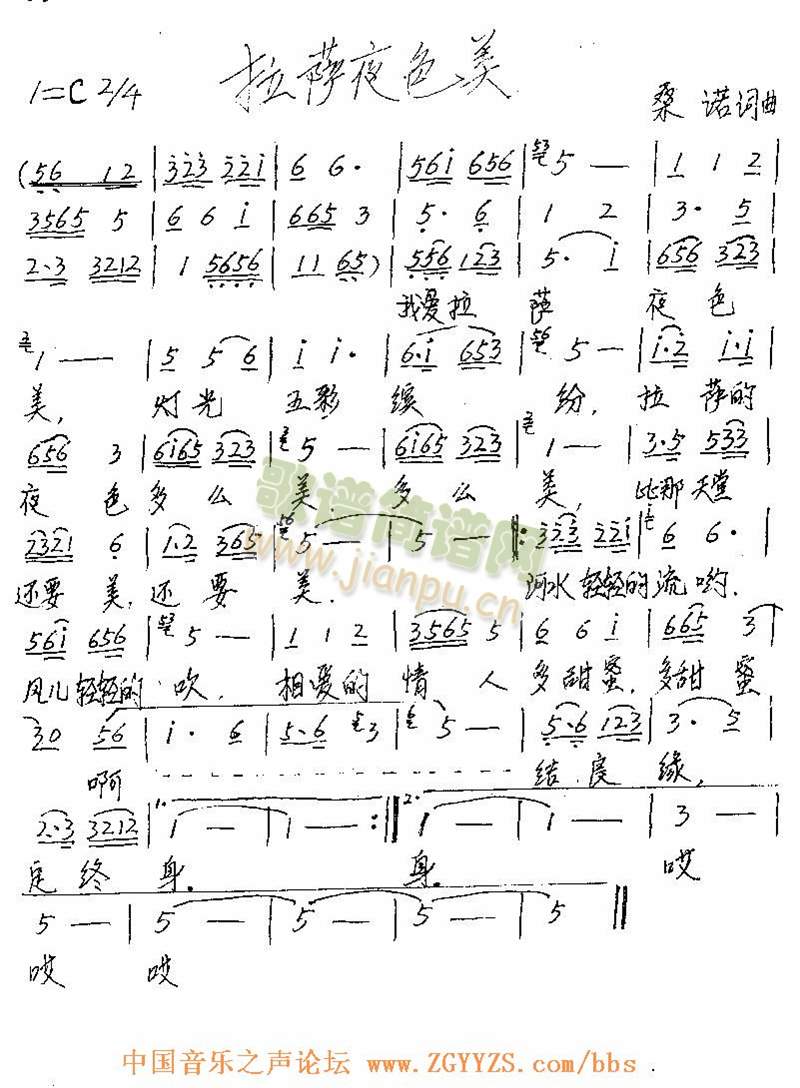 拉萨夜色美
1=C 2/4
桑诺词曲
(56 12 | 323 221 | 6 6· | 561 656 | 5 — | 1 1 2 |
3565 5 | 6 6 1 | 665 3 | 5· 6 | 1 2 | 3· 5 |
2·3 3212 | 1 5656 | 11 65) | 556 123 | 5· 1 | 656 323 |
我爱拉 萨 夜色
1 — | 5 5 6 | 1 1· | 6·1 653 | 5 — | 1·2 1·1 |
美, 灯光 五彩 缤 纷, 拉 萨的
656 3 | 6165 323 | 5 — | 6165 323 | 1 — | 3·5 533 |
夜 色多么 美, 多么 美, 比那天堂
2321 6 | 1·2 365 | 5 — | 5 — |: 323 221 | 6 6· |
还要 美, 还 要 美. 河水轻轻的流哟.
561 656 | 5 — | 1 1 2 | 3565 5 | 6 6 1 | 665 3 |
风儿轻轻的吹, 相爱的 情 人 多甜蜜, 多甜 蜜
30 56 | 1· 6 | 5·6 3 | 5 — | 5·6 123 | 3· 5 |
啊 结 良 缘,
2·3 3212 | 1. 1 — | 1 — :| 2. 1 — | 1 — | 3 — |
定 终 身. 身. 哎
5 — | 5 — | 5 — | 5 — | 5 ‖
哎 哎
歌谱简谱网
www.jianpu.cn
中国音乐之声论坛 www.ZGYYZS.com/bbs